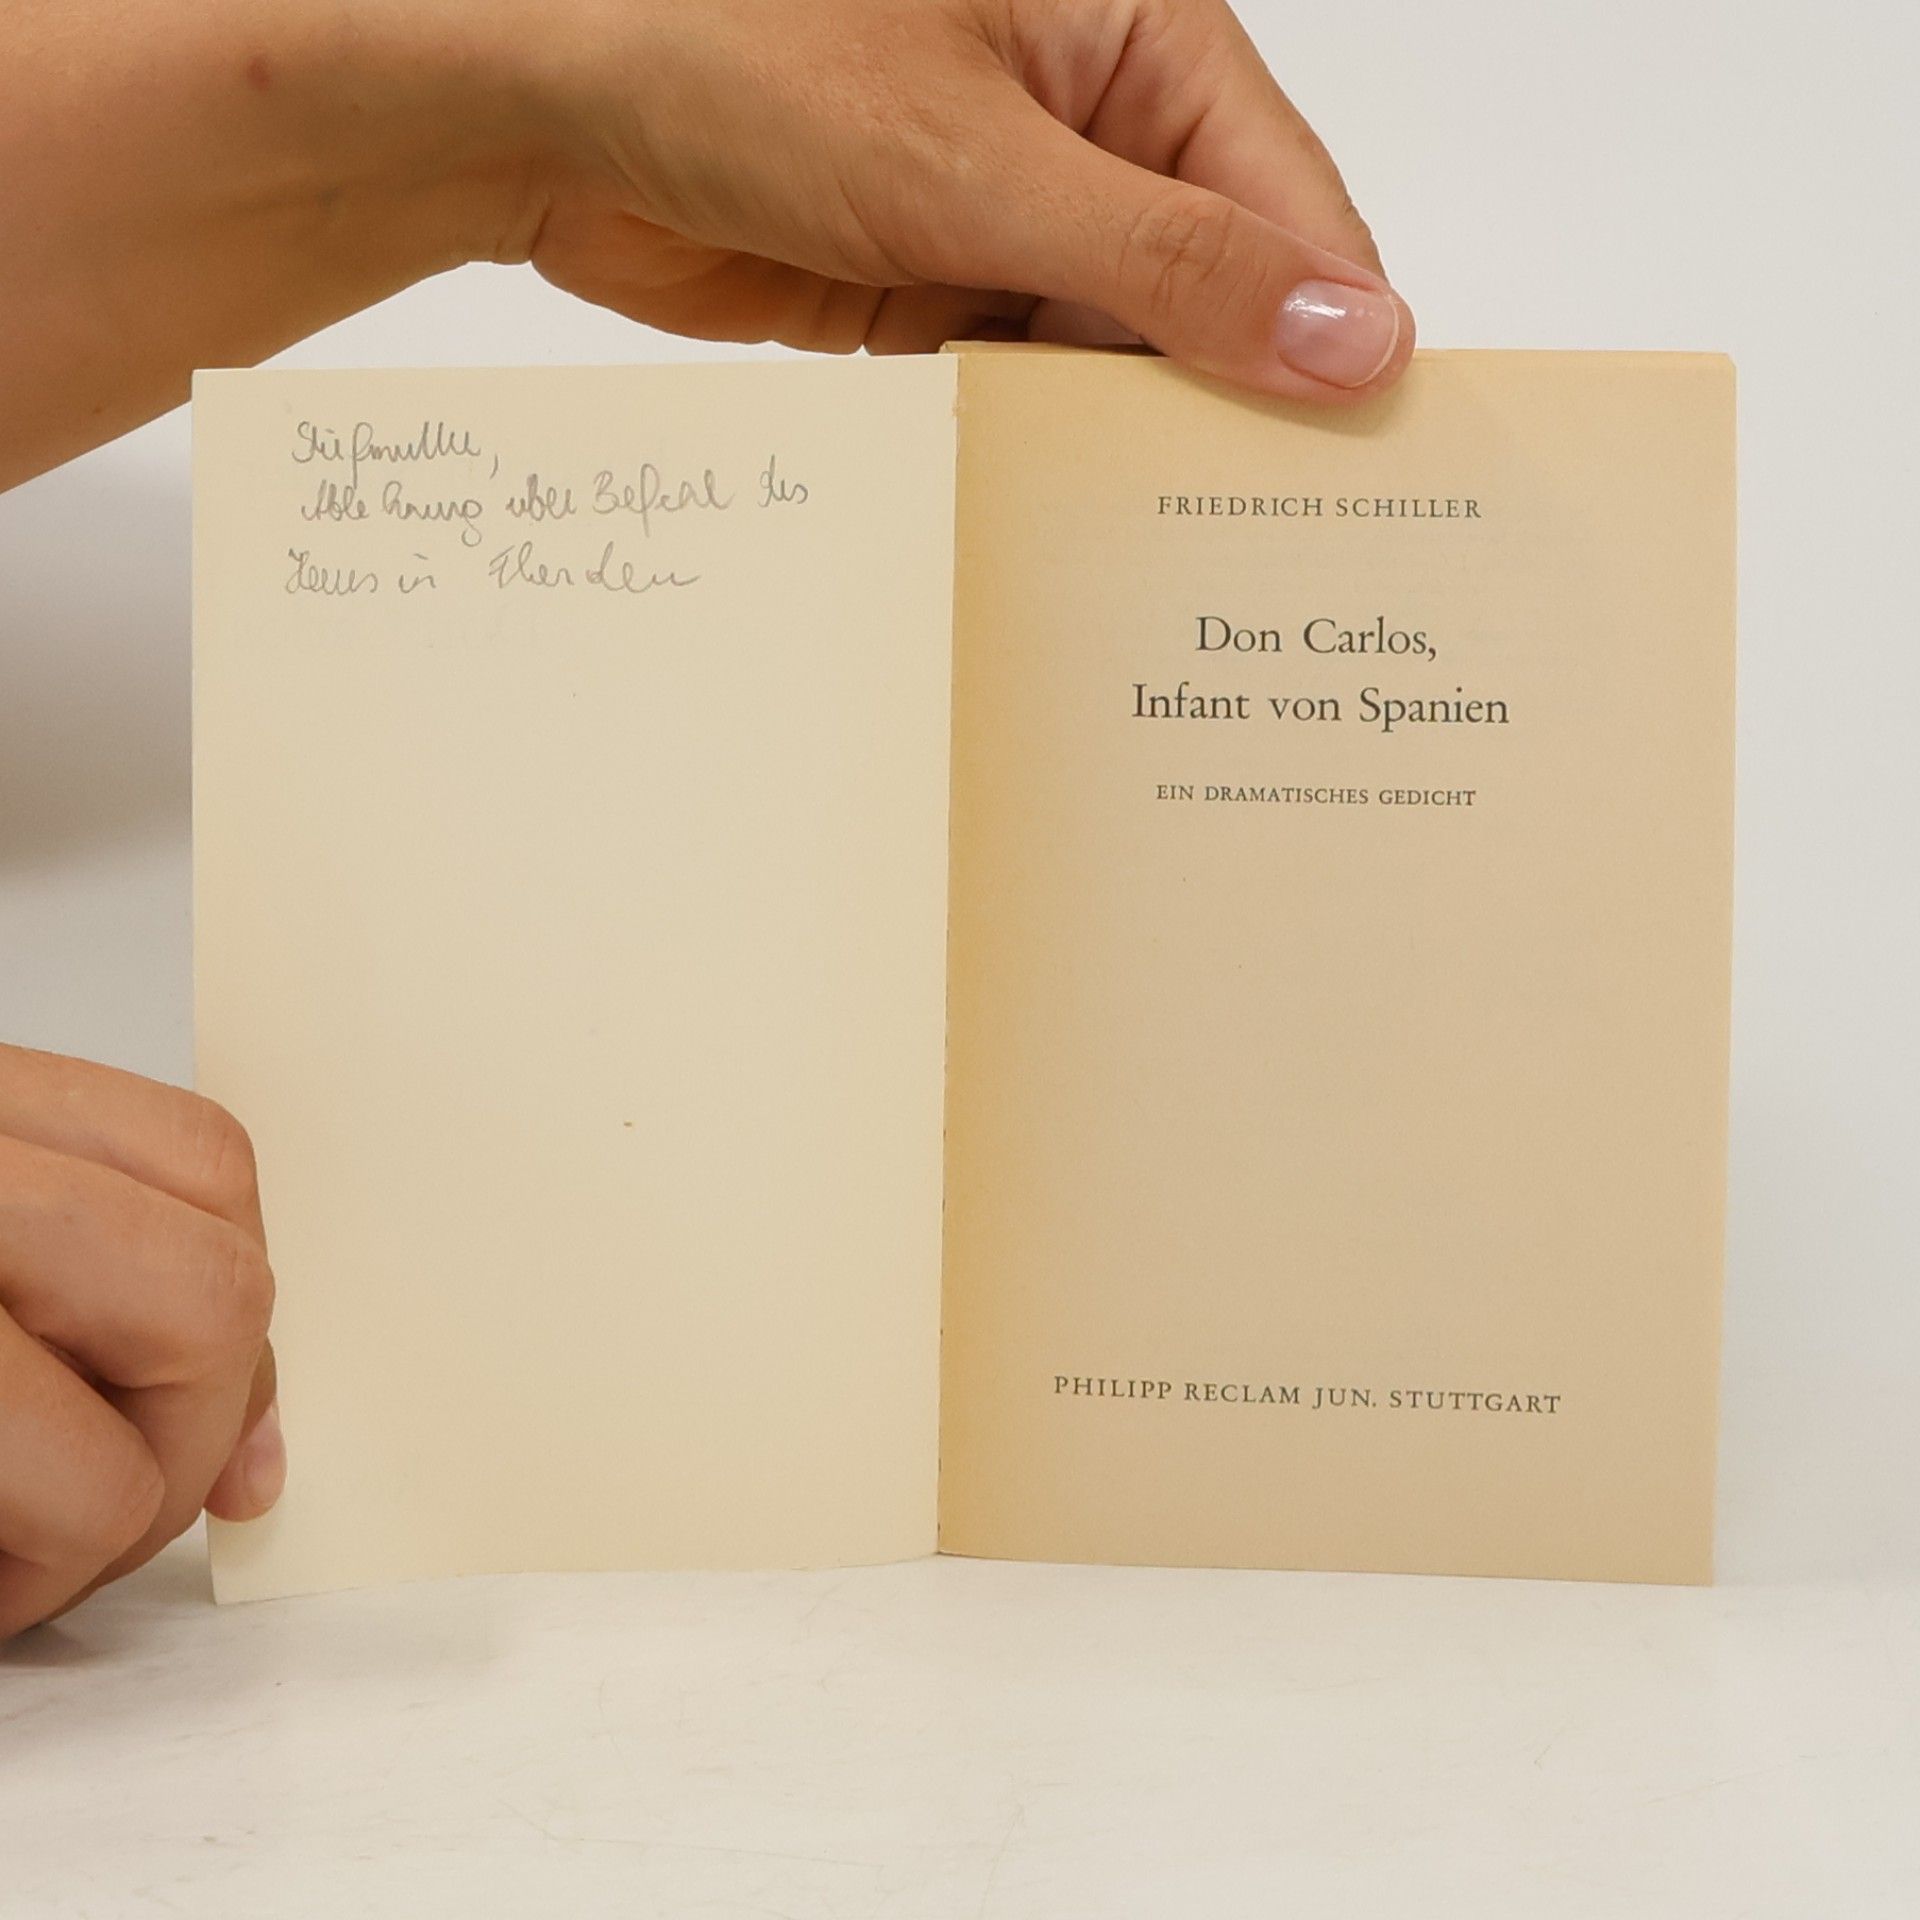 Stiefmutter,
Ablehnung über Befehl des
in
FRIEDRICH SCHILLER
Don Carlos,
Infant von Spanien
EIN DRAMATISCHES GEDICHT
PHILIPP RECLAM JUN. STUTTGART